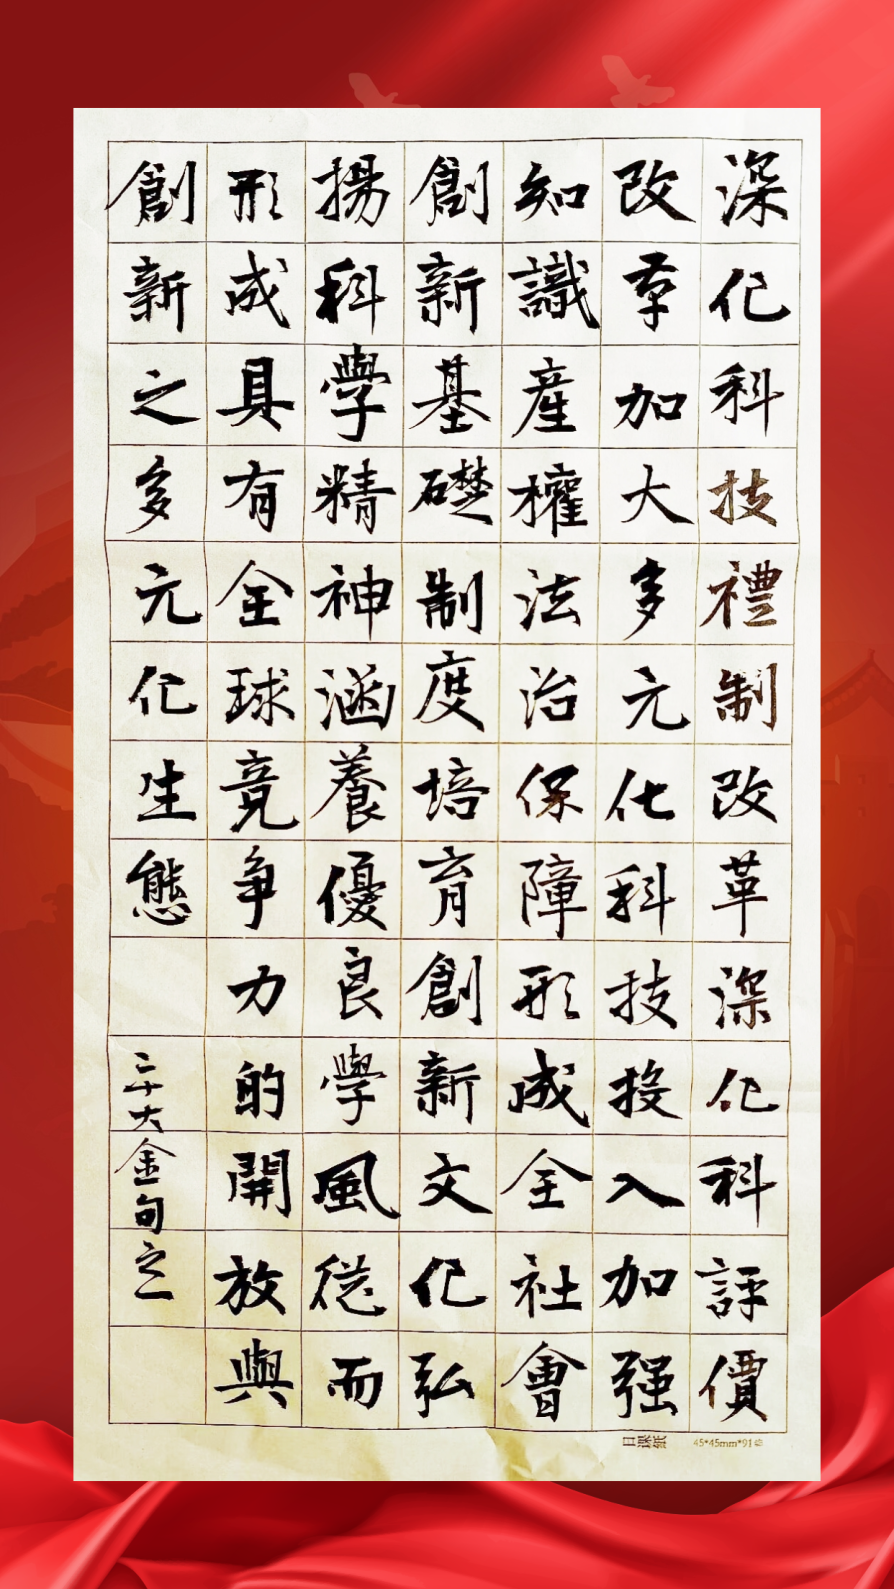 深化科技禮制改革深化科評價
改革加大多元化科技投入加强
知識産權法治保障形成全社會
創新基礎制度培育創新文化弘
揚科學精神涵養優良學風從而
形成具有全球竟争力的開放與
創新之多元化生態
二十大金句之一
日課紙 45*45mm*91格